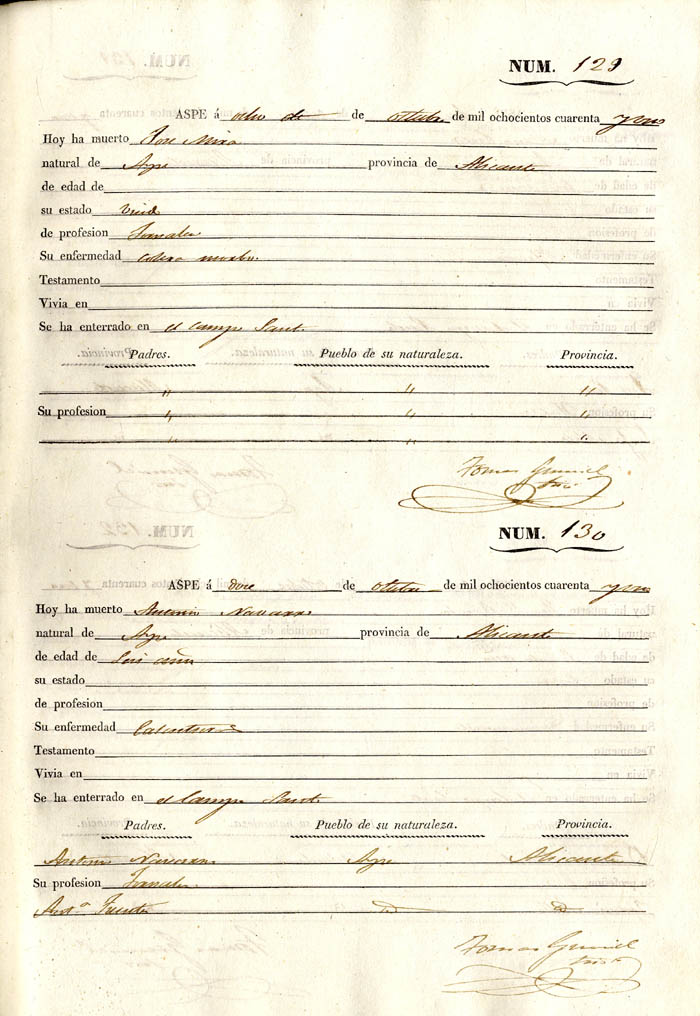 NUM. 129
ASPE á ocho de de octubre de mil ochocientos cuarenta y uno
Hoy ha muerto Jose Mira
natural de Aspe provincia de Alicante
de edad de
su estado Viudo
de profesion Jornalero
Su enfermedad colera morbo
Testamento
Vivia en
Se ha enterrado en el campo Santo
Padres. Pueblo de su naturaleza. Provincia.
" " "
Su profesion " " "
" " "
Tomas
NUM. 130
ASPE á doce de octubre de mil ochocientos cuarenta y uno
Hoy ha muerto Antonio Navarro
natural de Aspe provincia de Alicante
de edad de Seis años
su estado
de profesion
Su enfermedad Calentura
Testamento
Vivia en
Se ha enterrado en el Campo Santo
Padres. Pueblo de su naturaleza. Provincia.
Antonio Navarro Aspe Alicante
Su profesion Jornalero
Ant.ª
Tomas